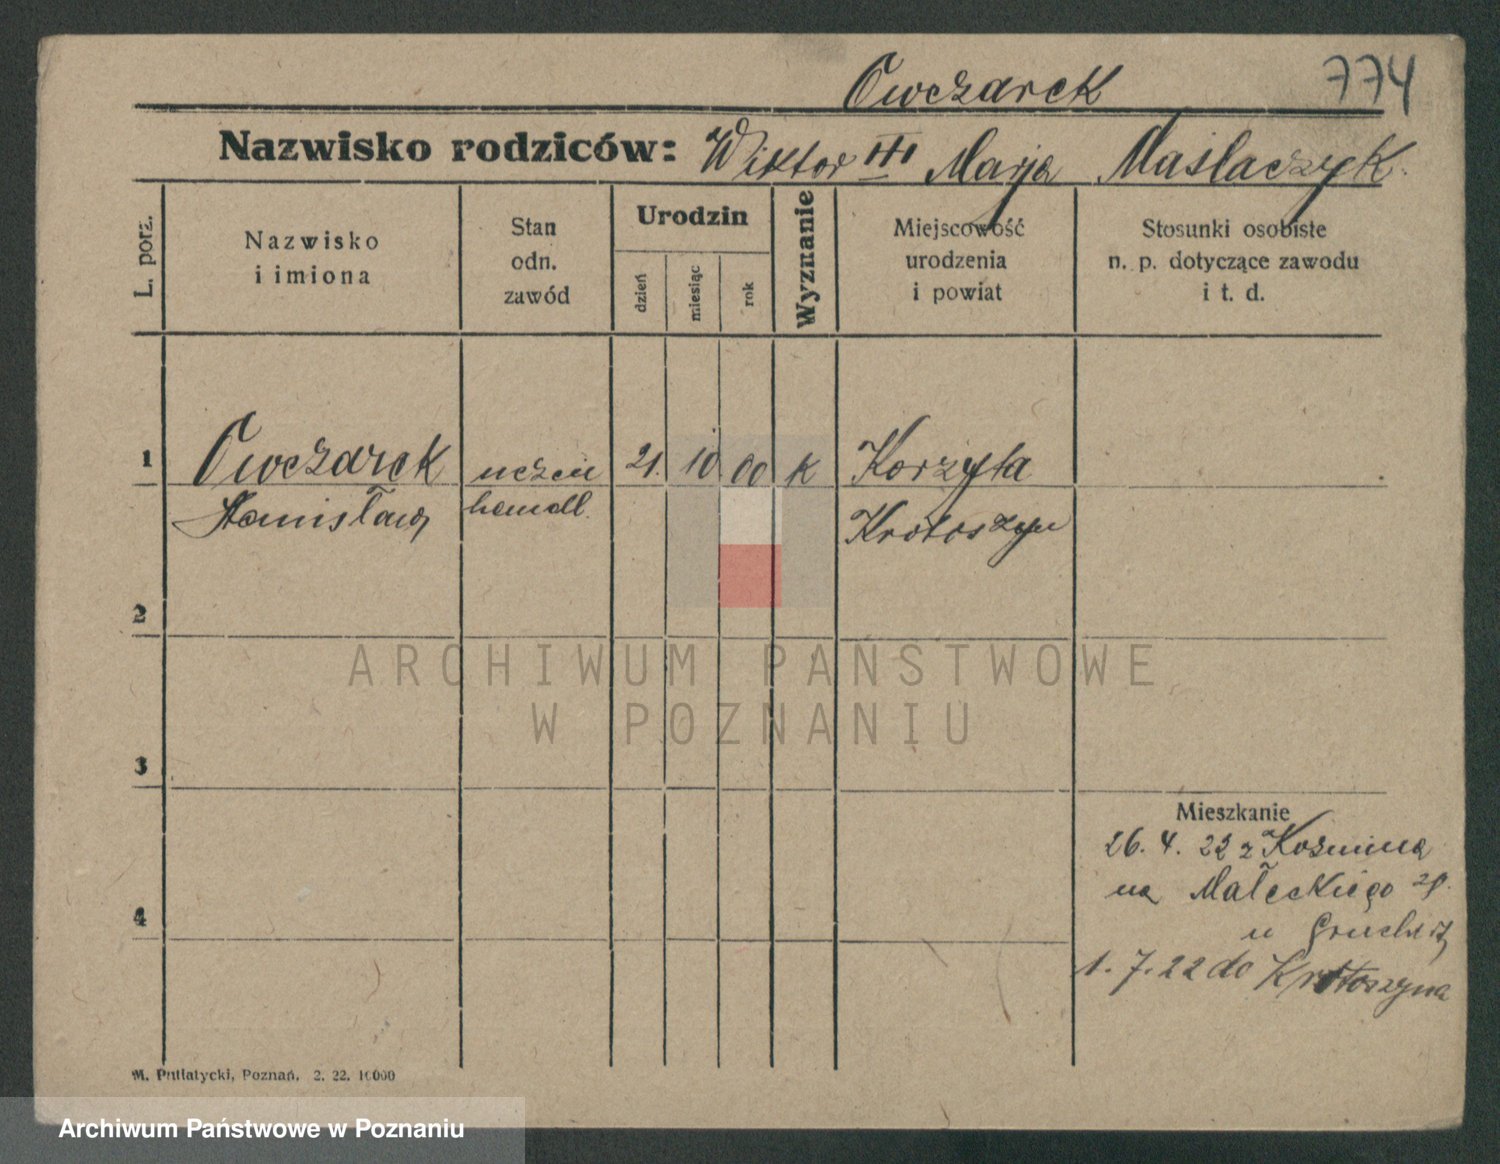 Owczarek 774
Nazwisko rodziców: Wiktor III Marja Maślaczyk.
L. porz.
Nazwisko
i imiona
Stan
odn.
zawód
Urodzin
dzień
miesiąc
rok
Wyznanie
Miejscowość
urodzenia
i powiat
Stosunki osobiste
n. p. dotyczące zawodu
i t. d.
1 Owczarek uczeń 21. 10 00 K Korzyta
Stanisław handl. Krotoszyn
2
3
4
Mieszkanie
26. 4. 22 z Koźmina
na Małeckiego
u
1. 7. 22 do Krotoszyna
M. Putiatycki, Poznań, 2. 22. 10000
ARCHIWUM PAŃSTWOWE
W POZNANIU
Archiwum Państwowe w Poznaniu